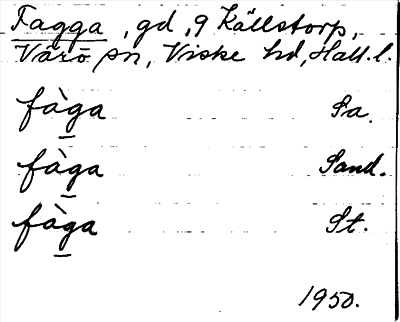 Fagga, gd, 9 Källstorp,
Värö sn, Viske hd, Hall. l.
fàga Sa.
fàga Sand.
fàga St.
1950.